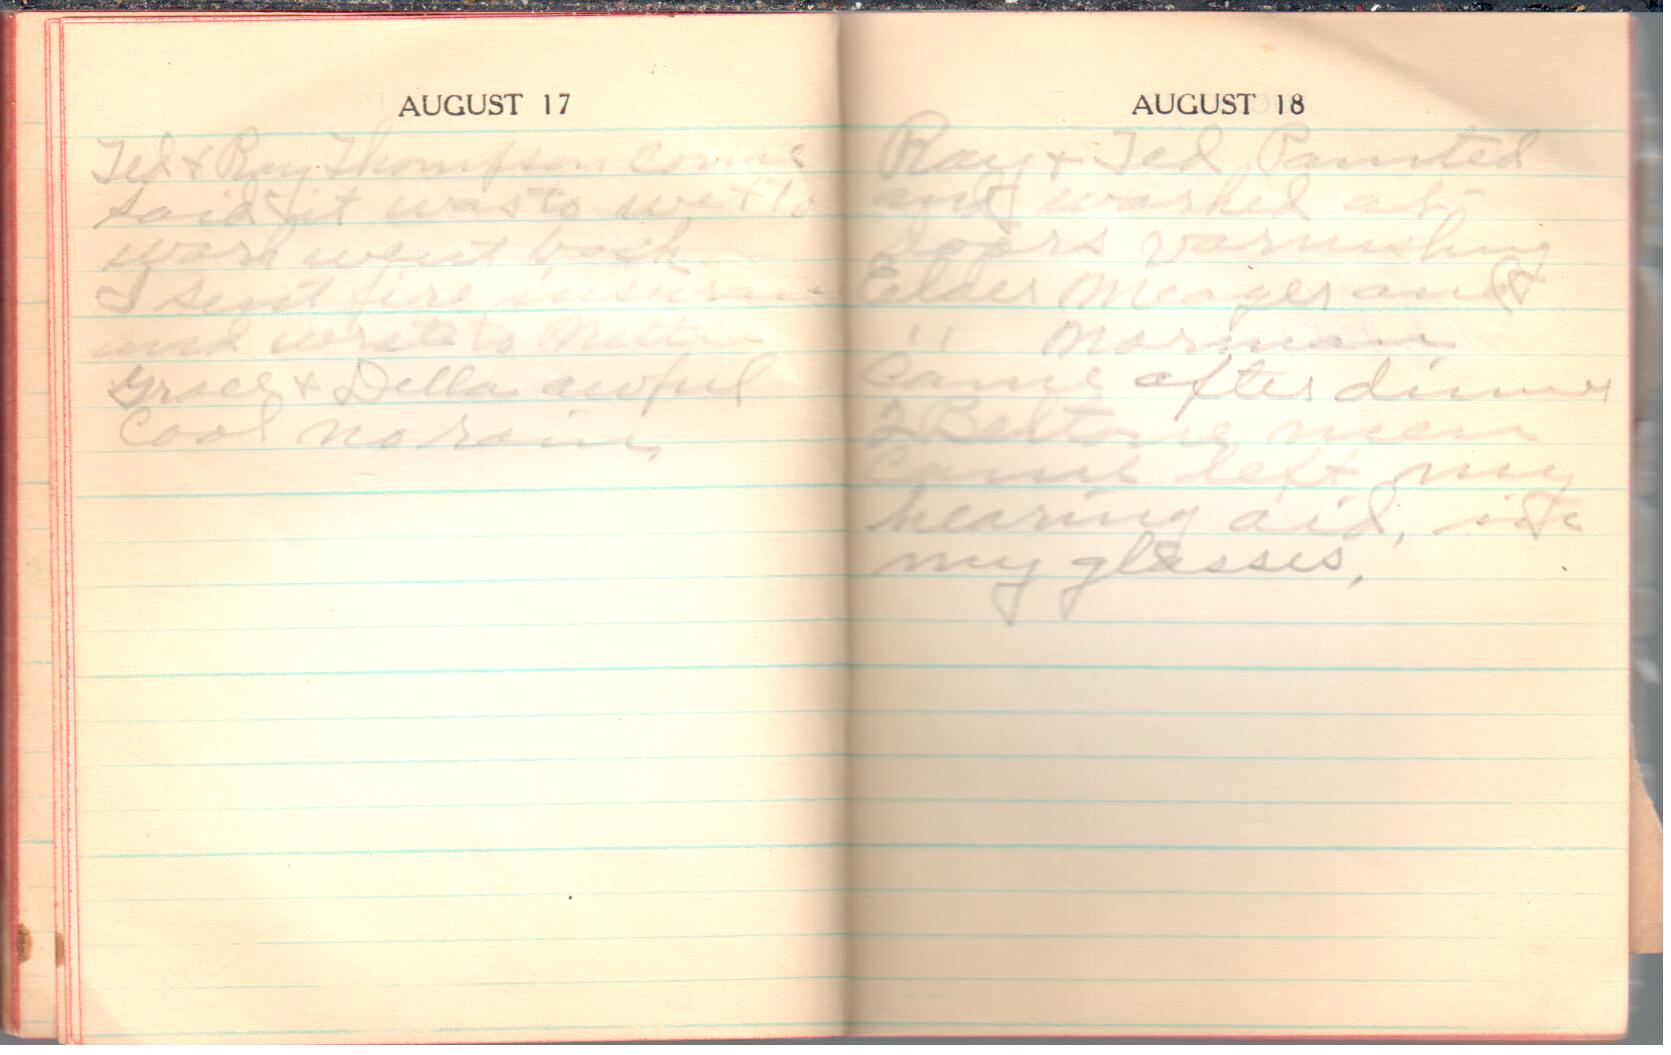 AUGUST 17
Ted & Ray Thompson come
said it was to wet to
work went back
I sent fire insuran
and wrote to Mattie
Grace & Della awful
Cool no rain,
AUGUST 18
Ray & Ted Painted
and worked at
doors varnishing
Elder Meager and
" Norman
Came after dinner
2 Beltone men
Came left my
hearing aid, in
my glasses,